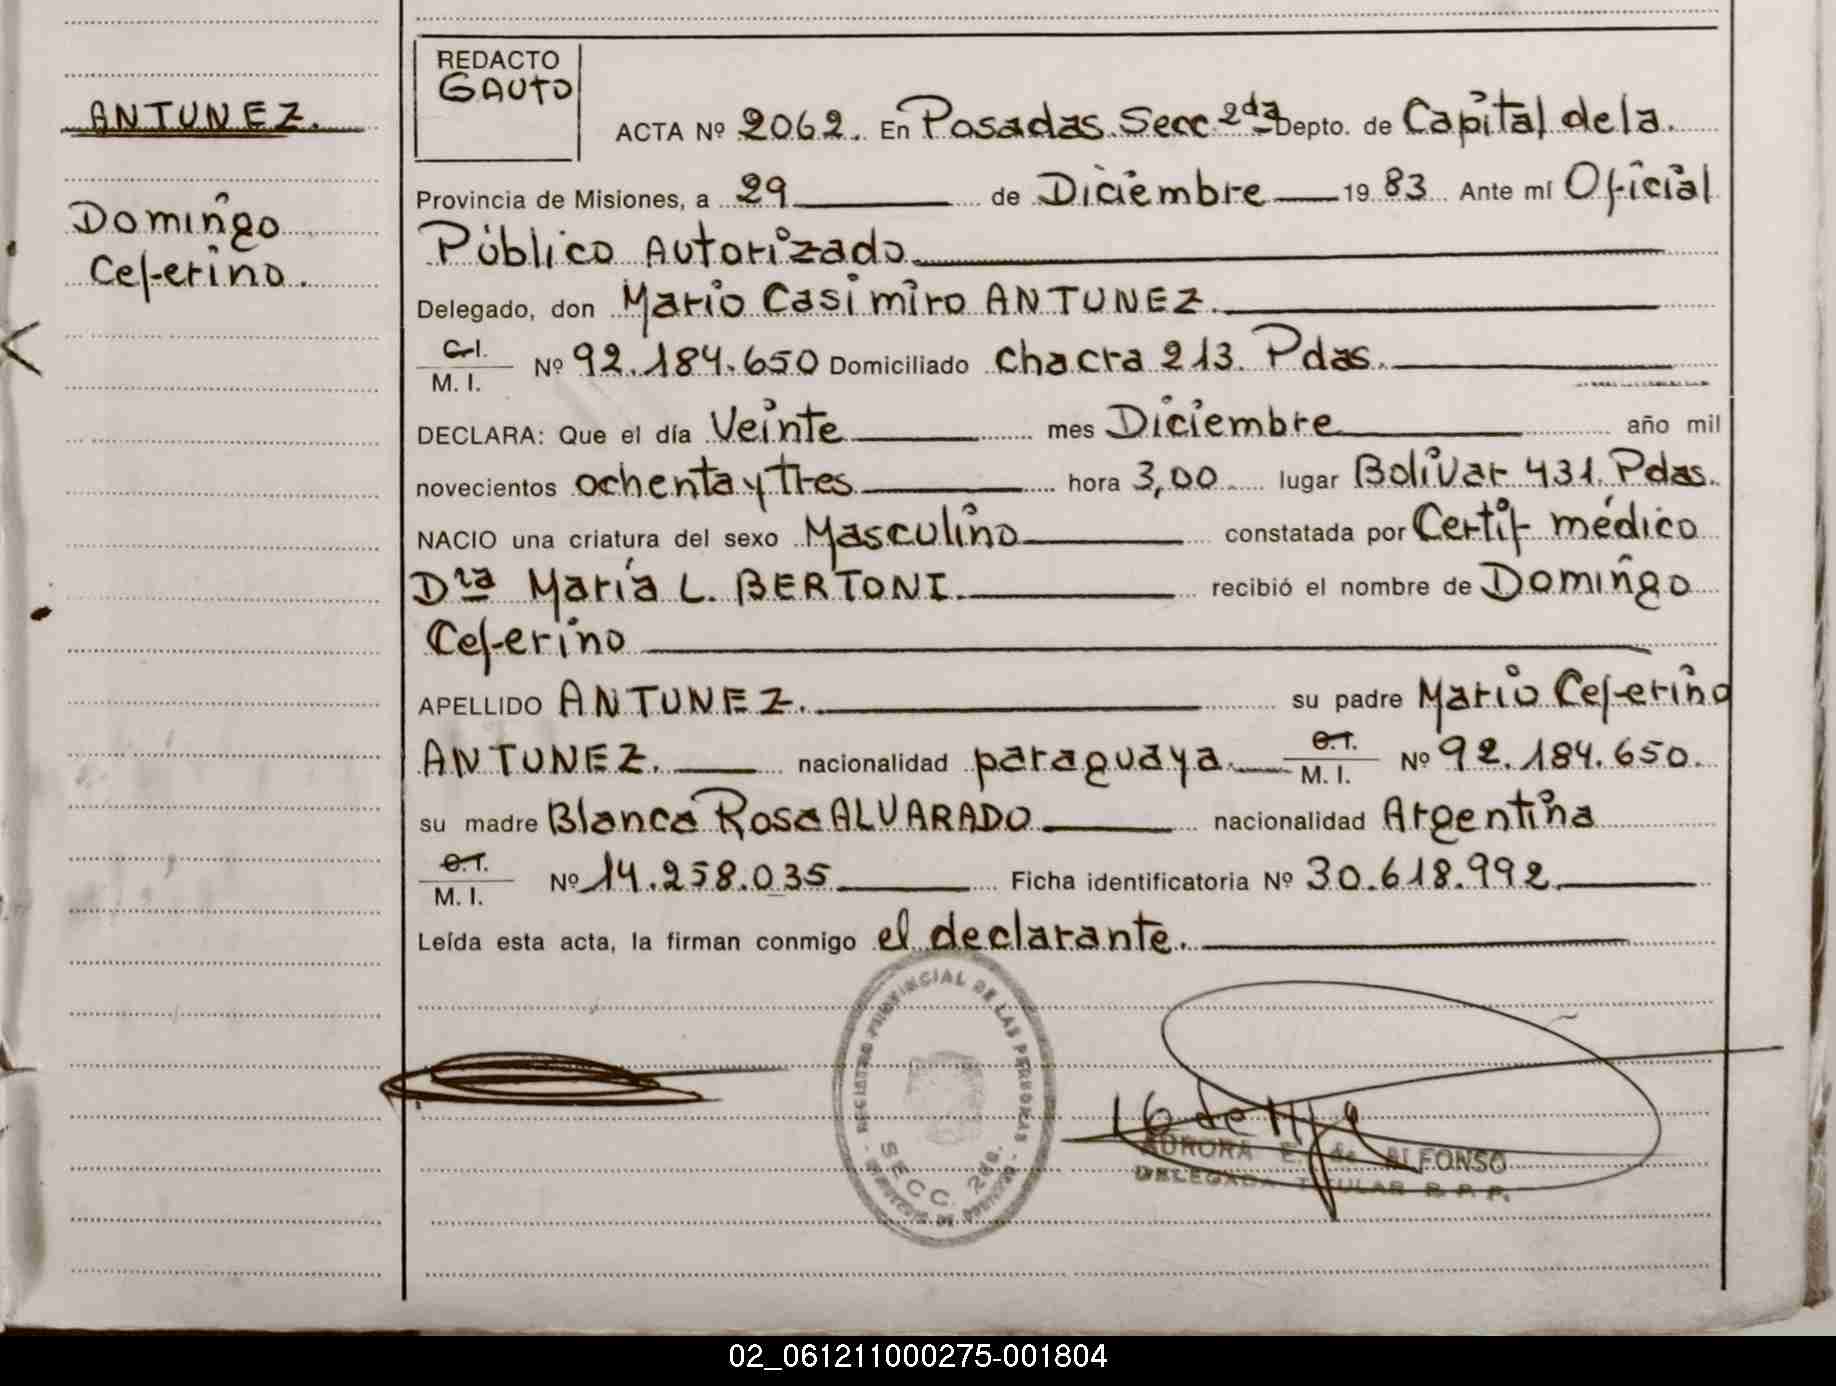 REDACTO
GAUTO
ANTUNEZ.
ACTA Nº 2062. En Posadas Secc 2da Depto. de Capital de la
Domingo
Provincia de Misiones, a 29 de Diciembre 19 83 Ante mí Oficial
Ceferino.
Público Autorizado
Delegado, don Mario Casimiro ANTUNEZ.
C.I.
M. I. Nº 92.184.650 Domiciliado Chacra 213. Pdas.
DECLARA: Que el día Veinte mes Diciembre año mil
novecientos ochenta y tres hora 3,00 lugar Bolívar 431. Pdas.
NACIO una criatura del sexo Masculino constatada por Certif médico
Dra María L. BERTONI. recibió el nombre de Domingo
Ceferino
APELLIDO ANTUNEZ. su padre Mario Ceferino
ANTUNEZ. nacionalidad paraguaya M. I. Nº 92.184.650.
su madre Blanca Rosa ALVARADO nacionalidad Argentina
M. I. Nº 14.258.035 Ficha identificatoria Nº 30.618.992
Leída esta acta, la firman conmigo el declarante.
REGISTRO PROVINCIAL DE LAS PERSONAS
SECC. 2da.
AURORA E. de ALFONSO
DELEGADA TITULAR R. P. P.
02_061211000275-001804